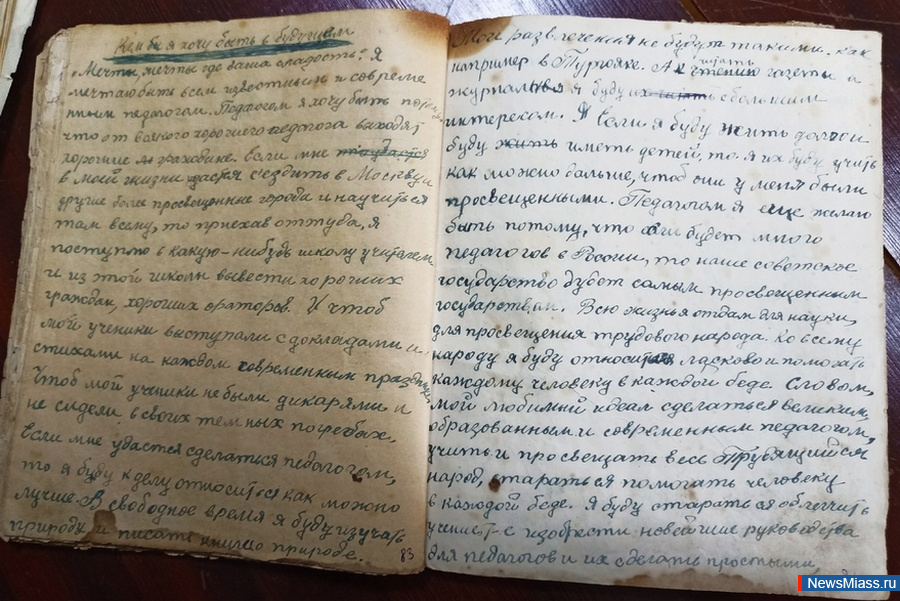 Кем бы я хочу быть в будущем
Мечты, мечты где ваша сладость? Я
мечтаю быть всем известным и совреме
нным педагогом. Педагогом я хочу быть потому
что от всякого хорошего педагога выходят
хорошие граждане. Если мне
в моей жизни удастся съездить в Москву и
другие более просвещенные города и научиться
там всему, то приехав оттуда, я
поступлю в какую-нибудь школу учителем
и из этой школы вывести хороших
граждан, хороших ораторов. И чтоб
мои ученики выступали с докладами и
стихами на каждом современным празднике
Чтоб мои ученики не были дикарями и
не сидели в своих темных погребах.
Если мне удастся сделаться педагогом,
то я буду к делу относиться как можно
лучше. В свободное время я буду изучать
природу и писать о природе.
83
Мои развлечения не будут такими, как
например в Тургояке. А читать газеты и
журналы я буду с большим
интересом. Если я буду жить долго и
буду иметь детей, то я их буду учить
как можно больше, чтоб они у меня были
просвещенными. Педагогом я еще желаю
быть потому, что если будет много
педагогов в России, то наше советское
государство будет самым просвещенным
государством. Всю жизнь я отдам для науки,
для просвещения трудового народа. Ко всему
народу я буду относиться ласково и помогать
каждому человеку в каждой беде. Словом,
мой любимый идеал сделаться великим,
образованным и современным педагогом,
учить и просвещать весь Трудящийся
народ, стараться помогать человеку
в каждой беде. Я буду стараться облегчить
учение, т-е изобрести новейшие руководства
для педагогов и их сделать простыми
NewsMiass.ru